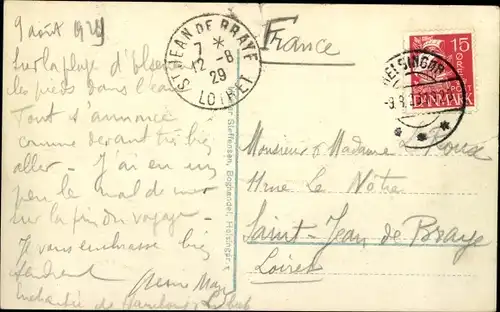 9 août 1929
Sur la plage d'
les pieds dans l'eau
Tout s'annonce
comme devant très bien
aller - J'ai eu un
peu le mal de mer
sur la fin du voyage -
Je vous embrasse bien
tendrement
enchantée de
France
ST JEAN DE BRAYE
7 *
12 -8
29
LOIRET
HELSINGØR
-9.8.
15
ØRE
POST
DANMARK
Steffensen, Boghandel, Helsingør.
Monsieur & Madame
Le Nôtre
Saint-Jean de Braye
Loiret